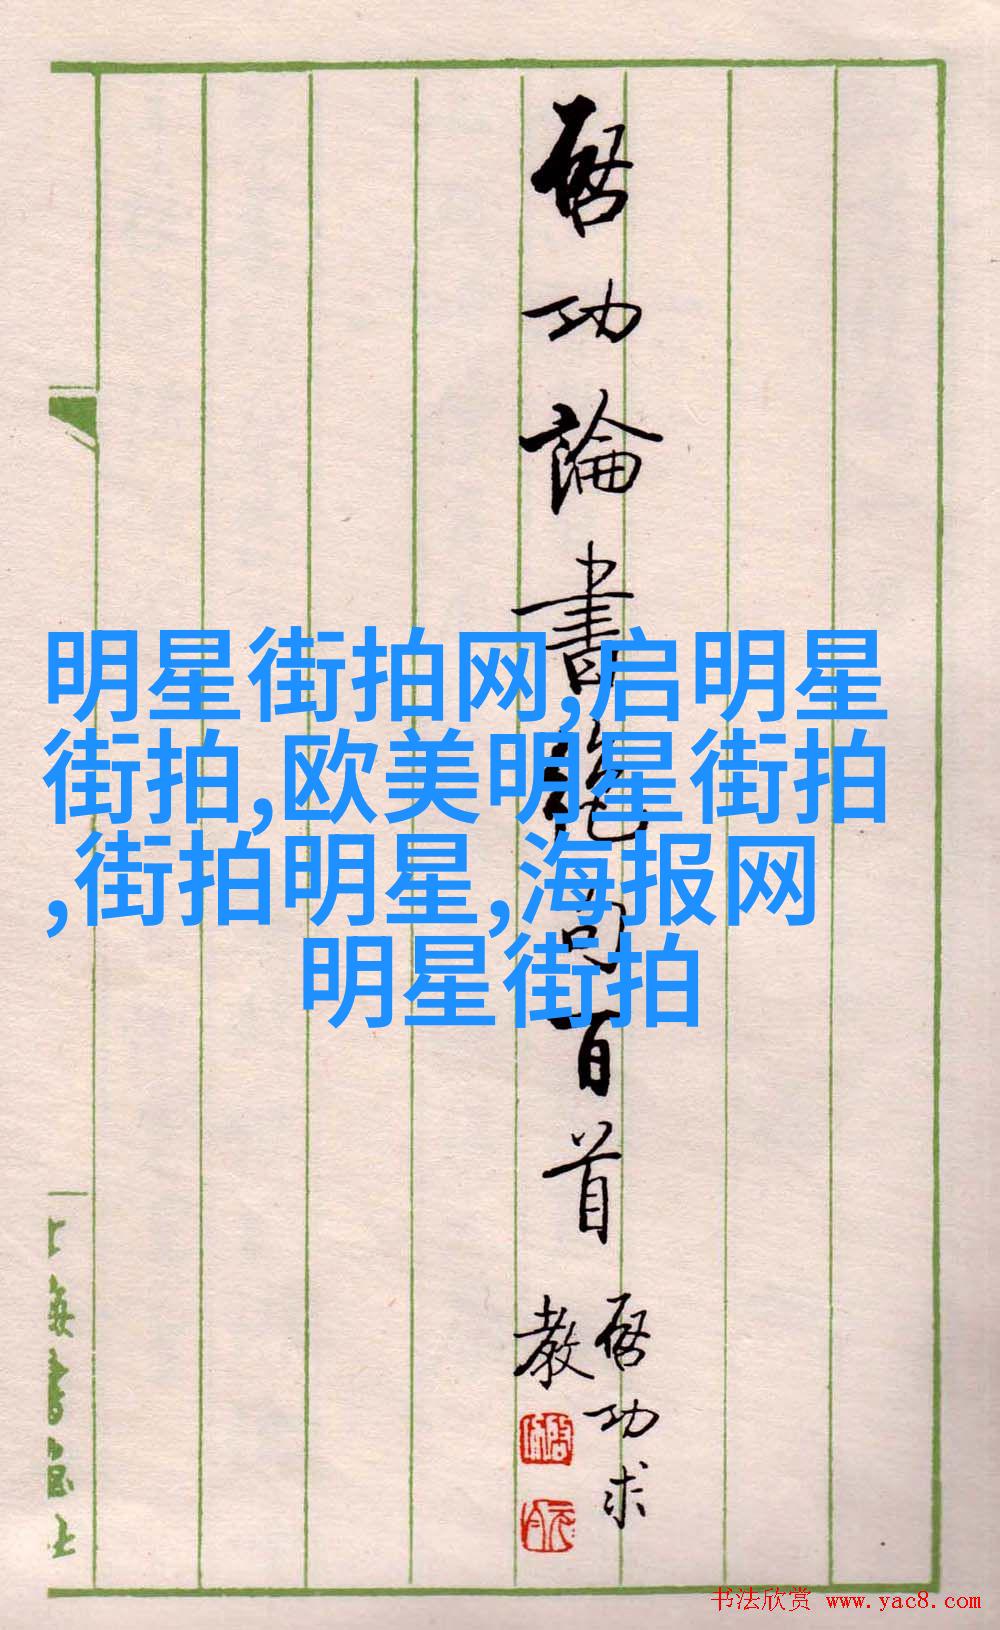 啓功論書絶句百首
啓功求
教
明星街拍网,启明星
街拍,欧美明星街拍
,街拍明星,海报网
明星街拍
上海書畫社
书法欣赏 www.yac8.com